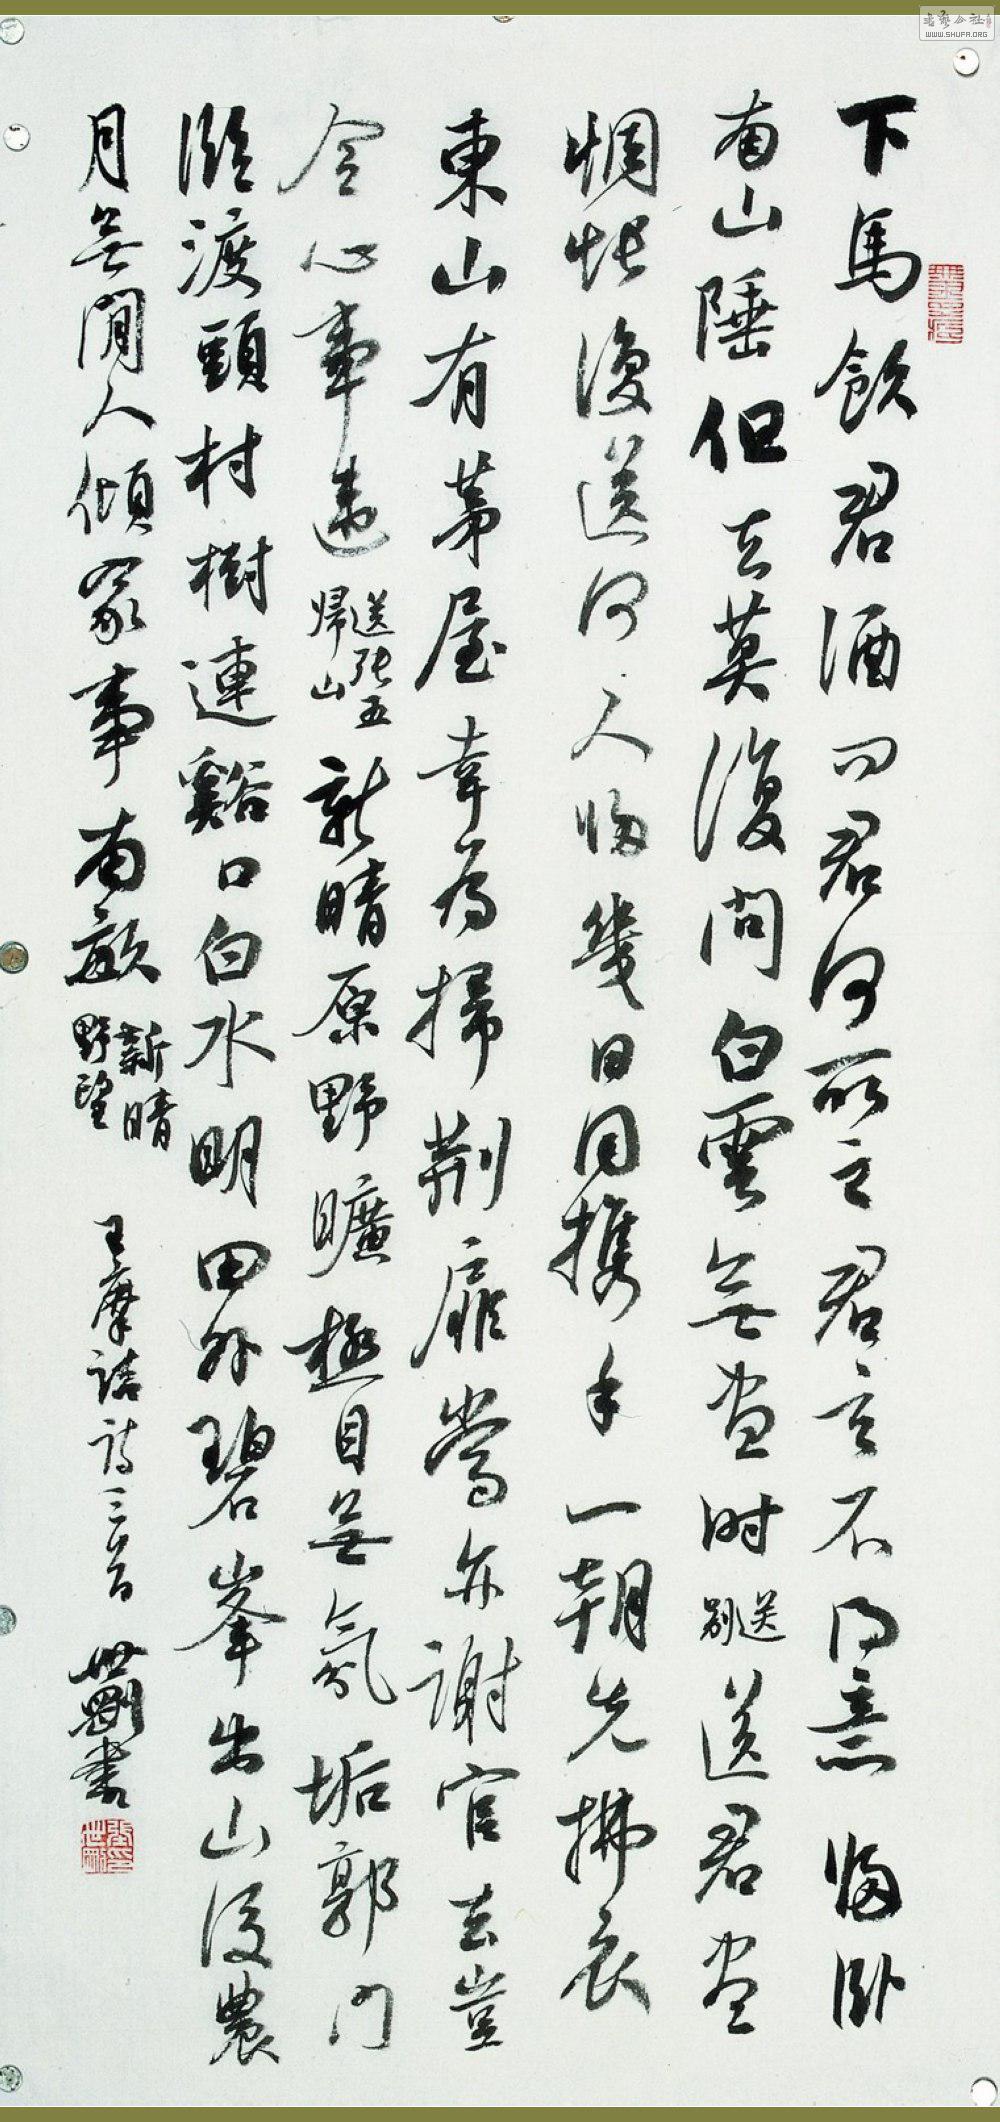 下馬飲君酒問君何所之君言不得意歸臥
南山陲但去莫復問白雲無盡時送別送君盡
惆悵復送何人歸幾日同携手一朝先拂衣
東山有茅屋幸為掃荊扉當亦謝官去豈
令心事違送張五歸山新晴原野曠極目無氛垢郭門
臨渡頭村樹連谿口白水明田外碧峯出山後農
月無閒人傾家事南畝新晴野望 王摩詰詩三首 世剛書
WWW.SHUFA.ORG